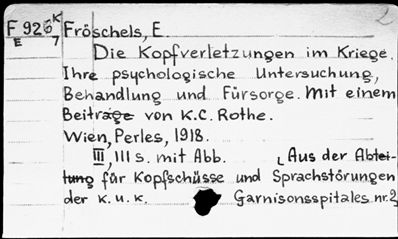 2
F 926 K Fröschels, E.
E 7
Die Kopfverletzungen im Kriege.
Ihre psychologische Untersuchung,
Behandlung und Fürsorge. Mit einem
Beitrage von K.C. Rothe.
Wien, Perles, 1918.
III, 111 s. mit Abb. [Aus der Abtei-
tung für Kopfschüsse und Sprachstörungen
der k. u. k. Garnisonsspitales nr. 2